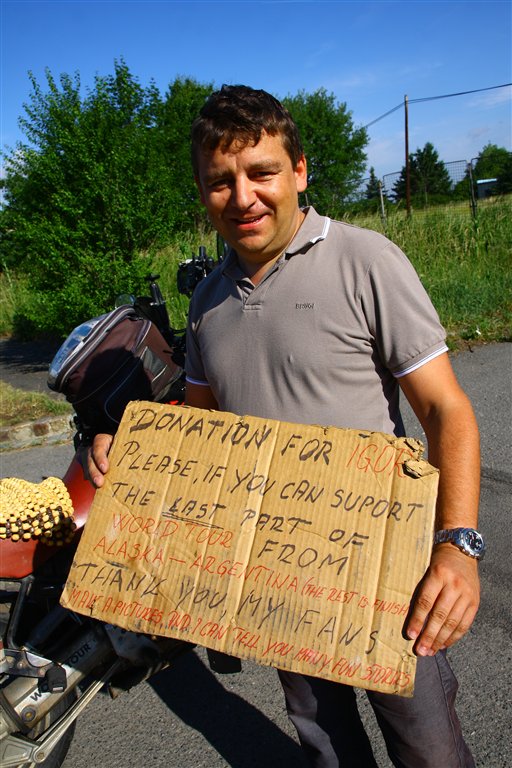 BRUGI
DONATION FOR IGOR
PLEASE, IF YOU CAN SUPORT
THE LAST PART OF
WORLD TOUR FROM
ALASKA – ARGENTINA (THE REST IS FINISH
THANK YOU, MY FANS
MAKE A PICTURES AND I CAN TELL YOU MANY FUN STORIES
WORLD TOUR